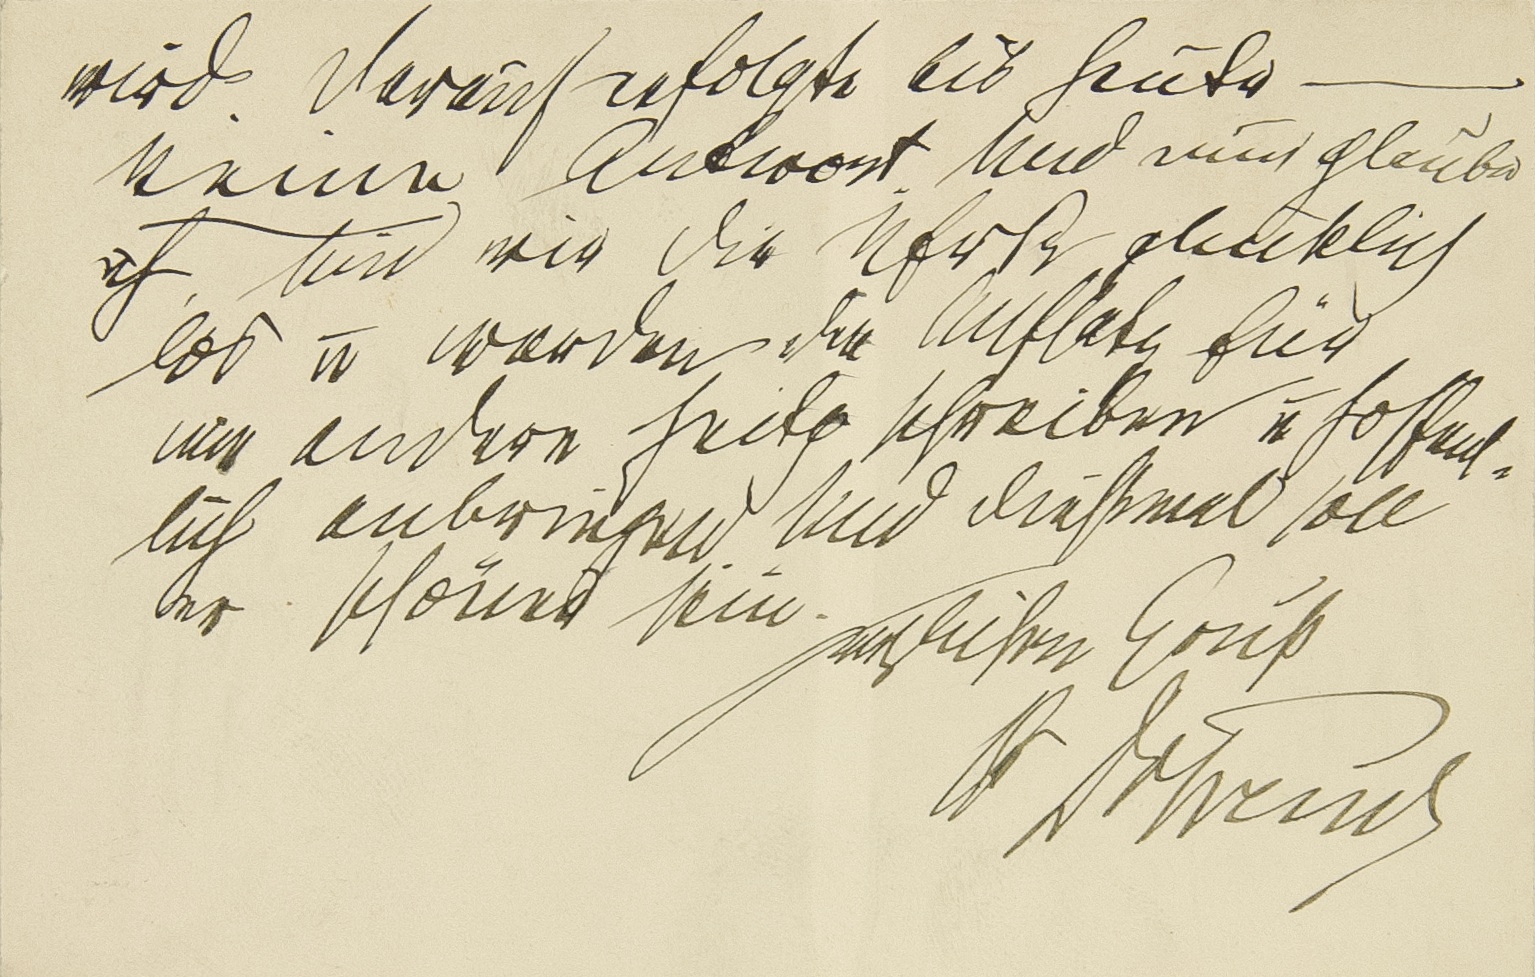 wird. Darauf erfolgte bis heute —
keine Antwort. Und nun glaube
ich, sind wir die glücklich
los u werden den Aufsatz für
eine andere schreiben u hoffent-
lich anbringen. Und diesmal soll
er schöner sein.
Herzlichen Gruß